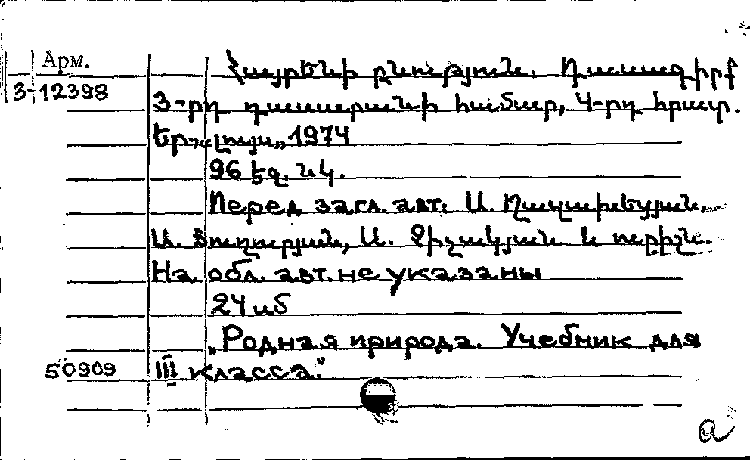 Арм.
Հայրենի բնություն. Դասագիրք
3-12398
3-րդ դասարանի համար, 4-րդ հրատ.
Եր., „Լույս„, 1974
96 էջ. նկ.
Перед загл. авт.: Ա.
Ա. և ուրիշն.
На обл. авт. не указаны
24 սմ
„Родная природа. Учебник для
50909 III класса."
a